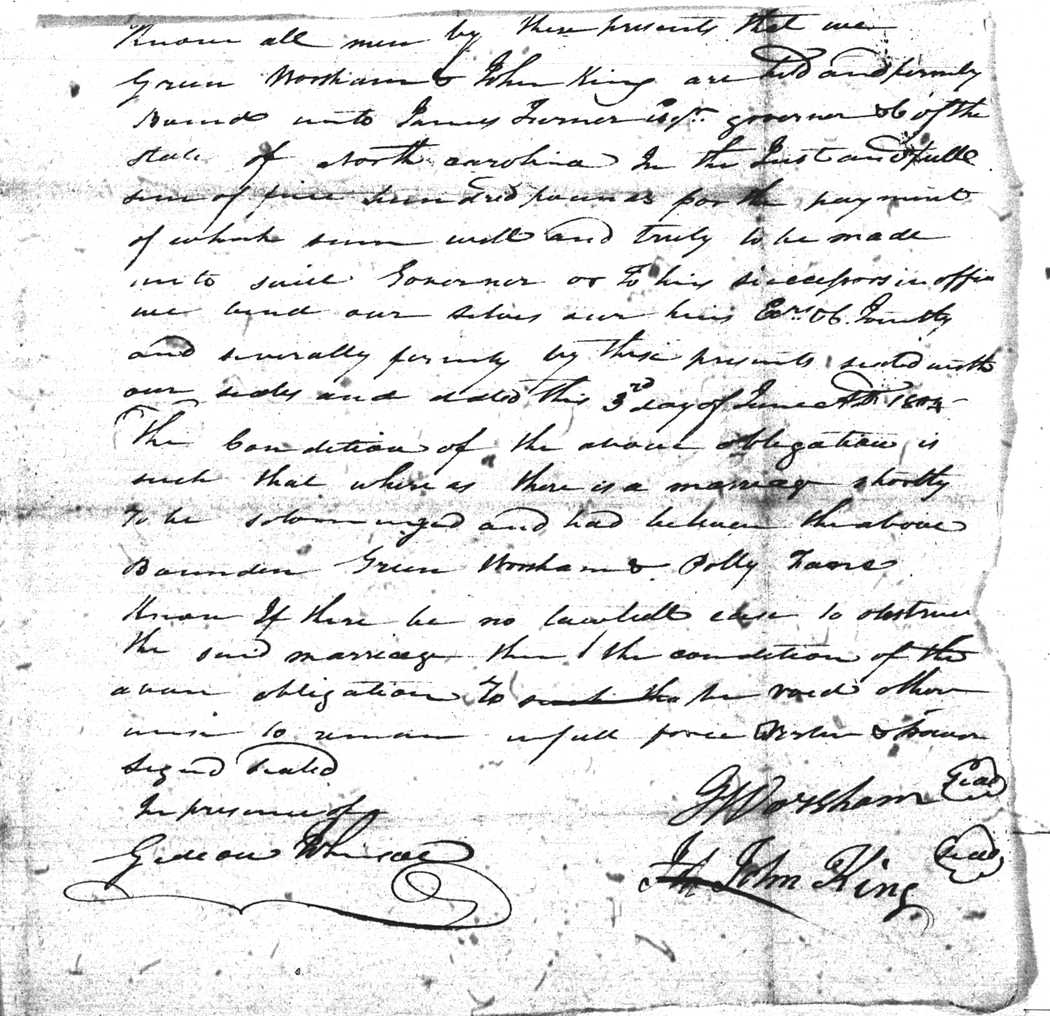 Know all men by these presents that we
Green Worsham & John King are held and firmly
Bound unto James Turner Esqr. governor &c of the
state of North carolina In the Just and full
sum of five hundred pounds for the payment
of which sum well and truly to be made
unto said Governor or To his successors in office
we bind our selves our heirs Exrs &c. Jointly
and severally firmly by these presents sealed with
our seales and dated this 3rd day of June AD.
The Condition of the above obligation is
such that where as there is a marriag shortly
To be and had between the above
Bounden Green Worsham & Polly
Know If there be no lawfull case to obstruct
the said marriage then the condition of the
avove obligation To be void other
wise to remain in full force &
Signd Sealed
In presence of
G Worsham Seal
Gideon
John King Seal